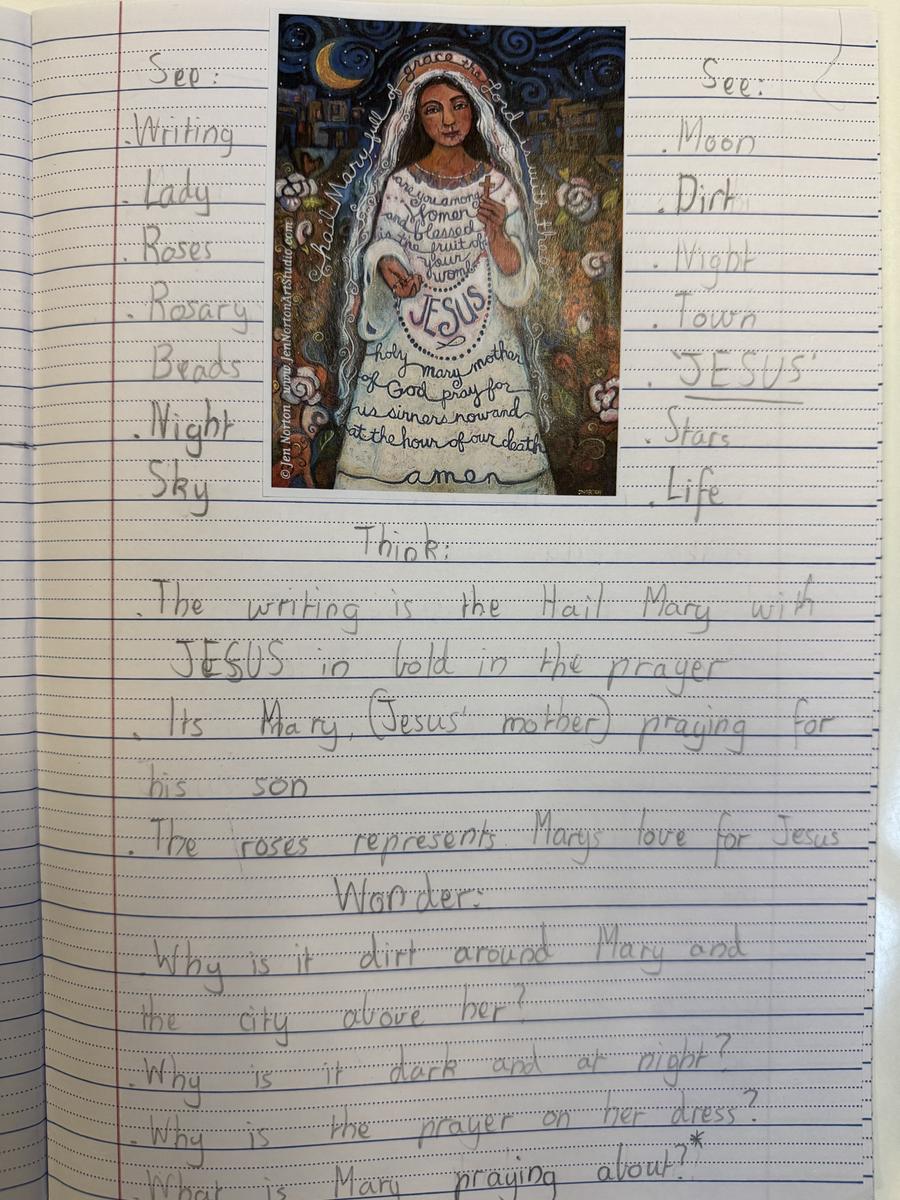 See:
. Writing
. Lady
. Roses
. Rosary
Beads
. Night
Sky
hail Mary full of grace the Lord is with thee
are you among
women
and blessed
is the fruit of
your
womb
JESUS
holy mary mother
of God pray for
us sinners now and
at the hour of our death
amen
© Jen Norton www.JenNortonArtStudio.com
See:
. Moon
. Dirt
. Night
. Town
. 'JESUS'
. Stars
. Life
Think:
. The writing is the Hail Mary with
JESUS in bold in the prayer
. Its Mary, (Jesus' mother) praying for
his son
. The roses represents Marys love for Jesus
Wonder:
. Why is it dirt around Mary and
the city above her?
. Why is it dark and at night?
. Why is the prayer on her dress?
. What is Mary praying about?*